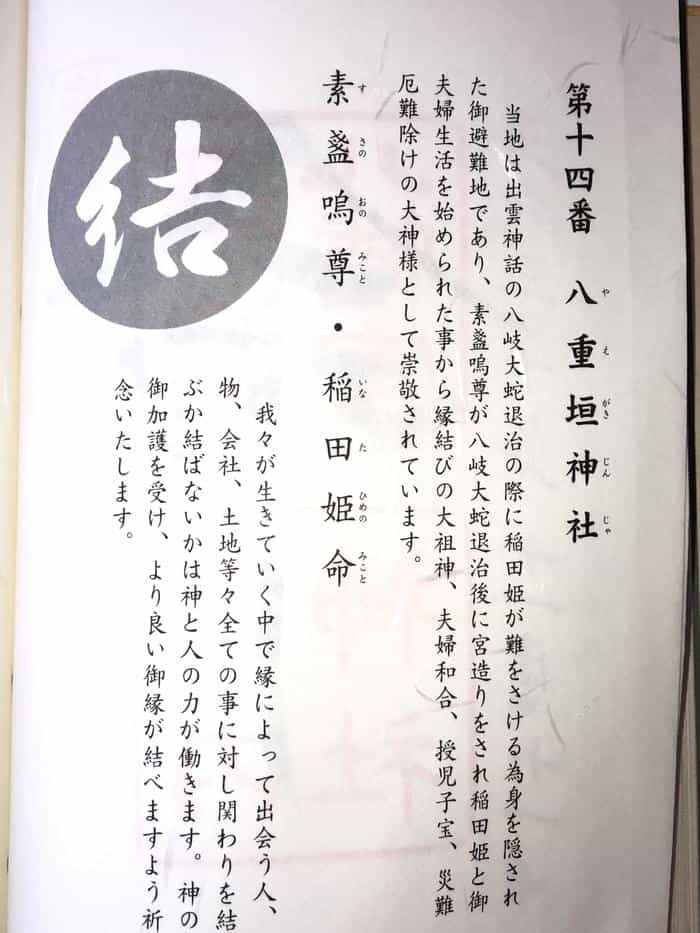 第十四番 八重垣神社
やえがきじんじゃ
当地は出雲神話の八岐大蛇退治の際に稲田姫が難をさける為身を隠され
た御避難地であり、素盞嗚尊が八岐大蛇退治後に宮造りをされ稲田姫と御
夫婦生活を始められた事から縁結びの大祖神、夫婦和合、授児子宝、災難
厄難除けの大神様として崇敬されています。
素盞嗚尊・稲田姫命
すさのおのみこと いなたひめのみこと
結
我々が生きていく中で縁によって出会う人、
物、会社、土地等々全ての事に対し関わりを結
ぶか結ばないかは神と人の力が働きます。神の
御加護を受け、より良い御縁が結べますよう祈
念いたします。